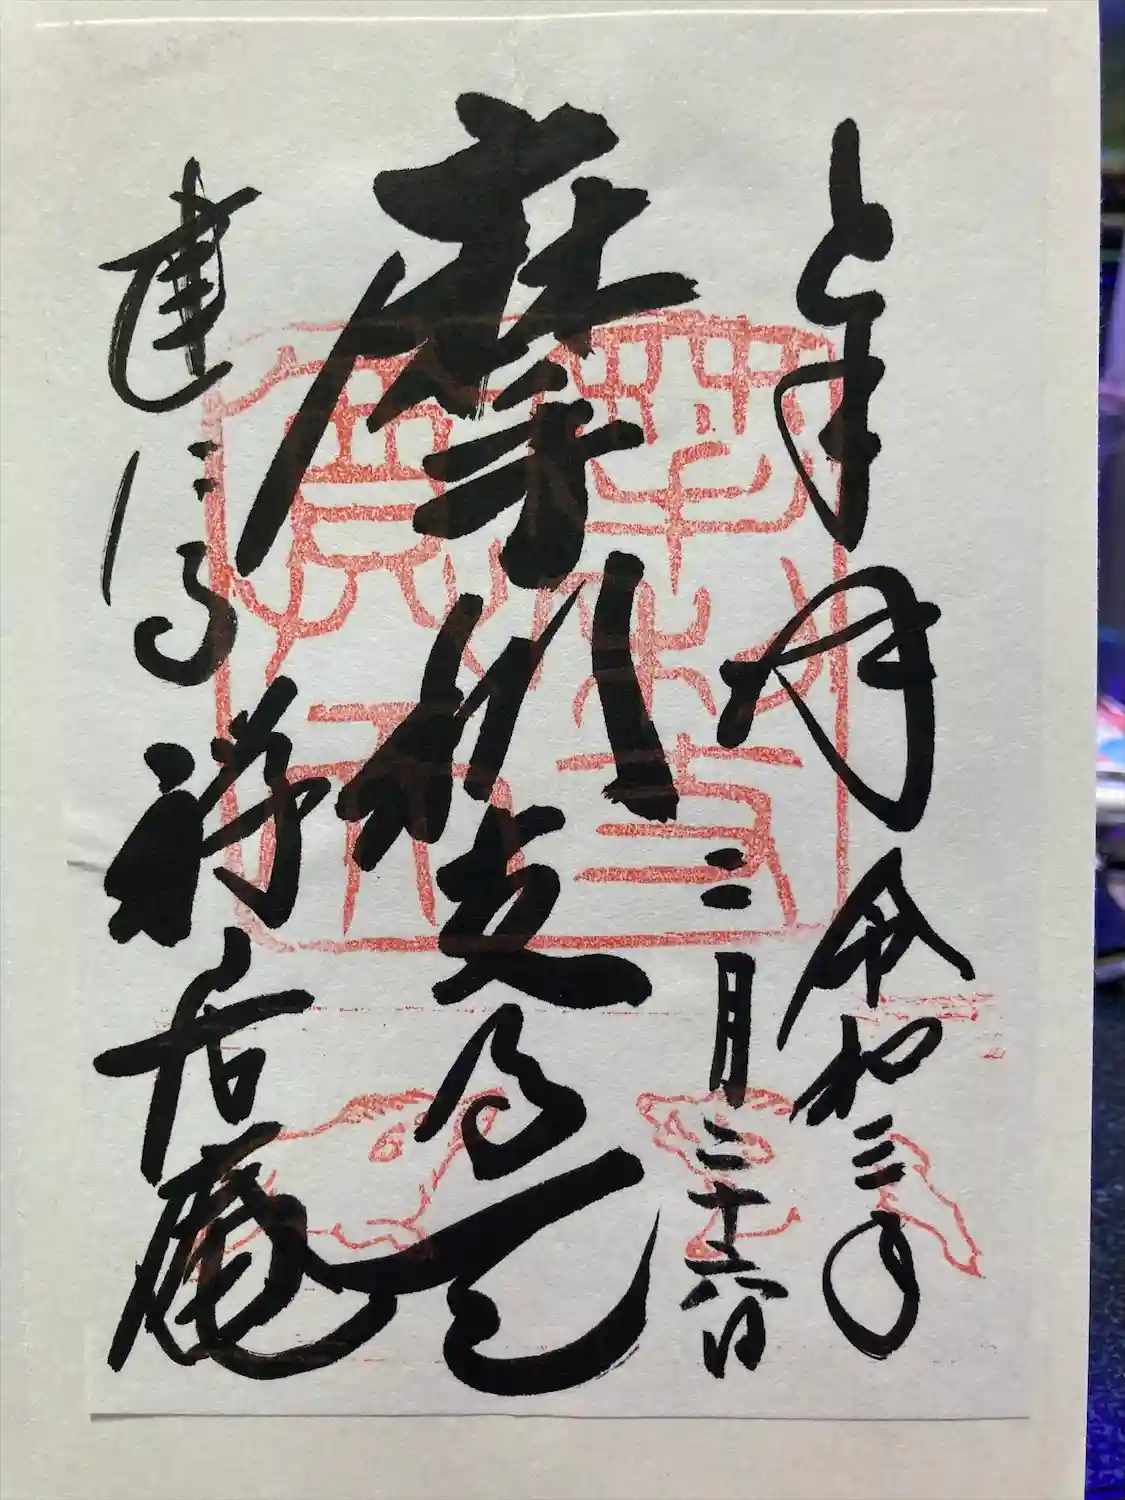 奉拝
令和三年
二月二十六日
摩利支尊天
建仁寺
禅居庵